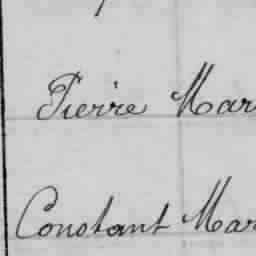 Pierre Mar
Constant Mar